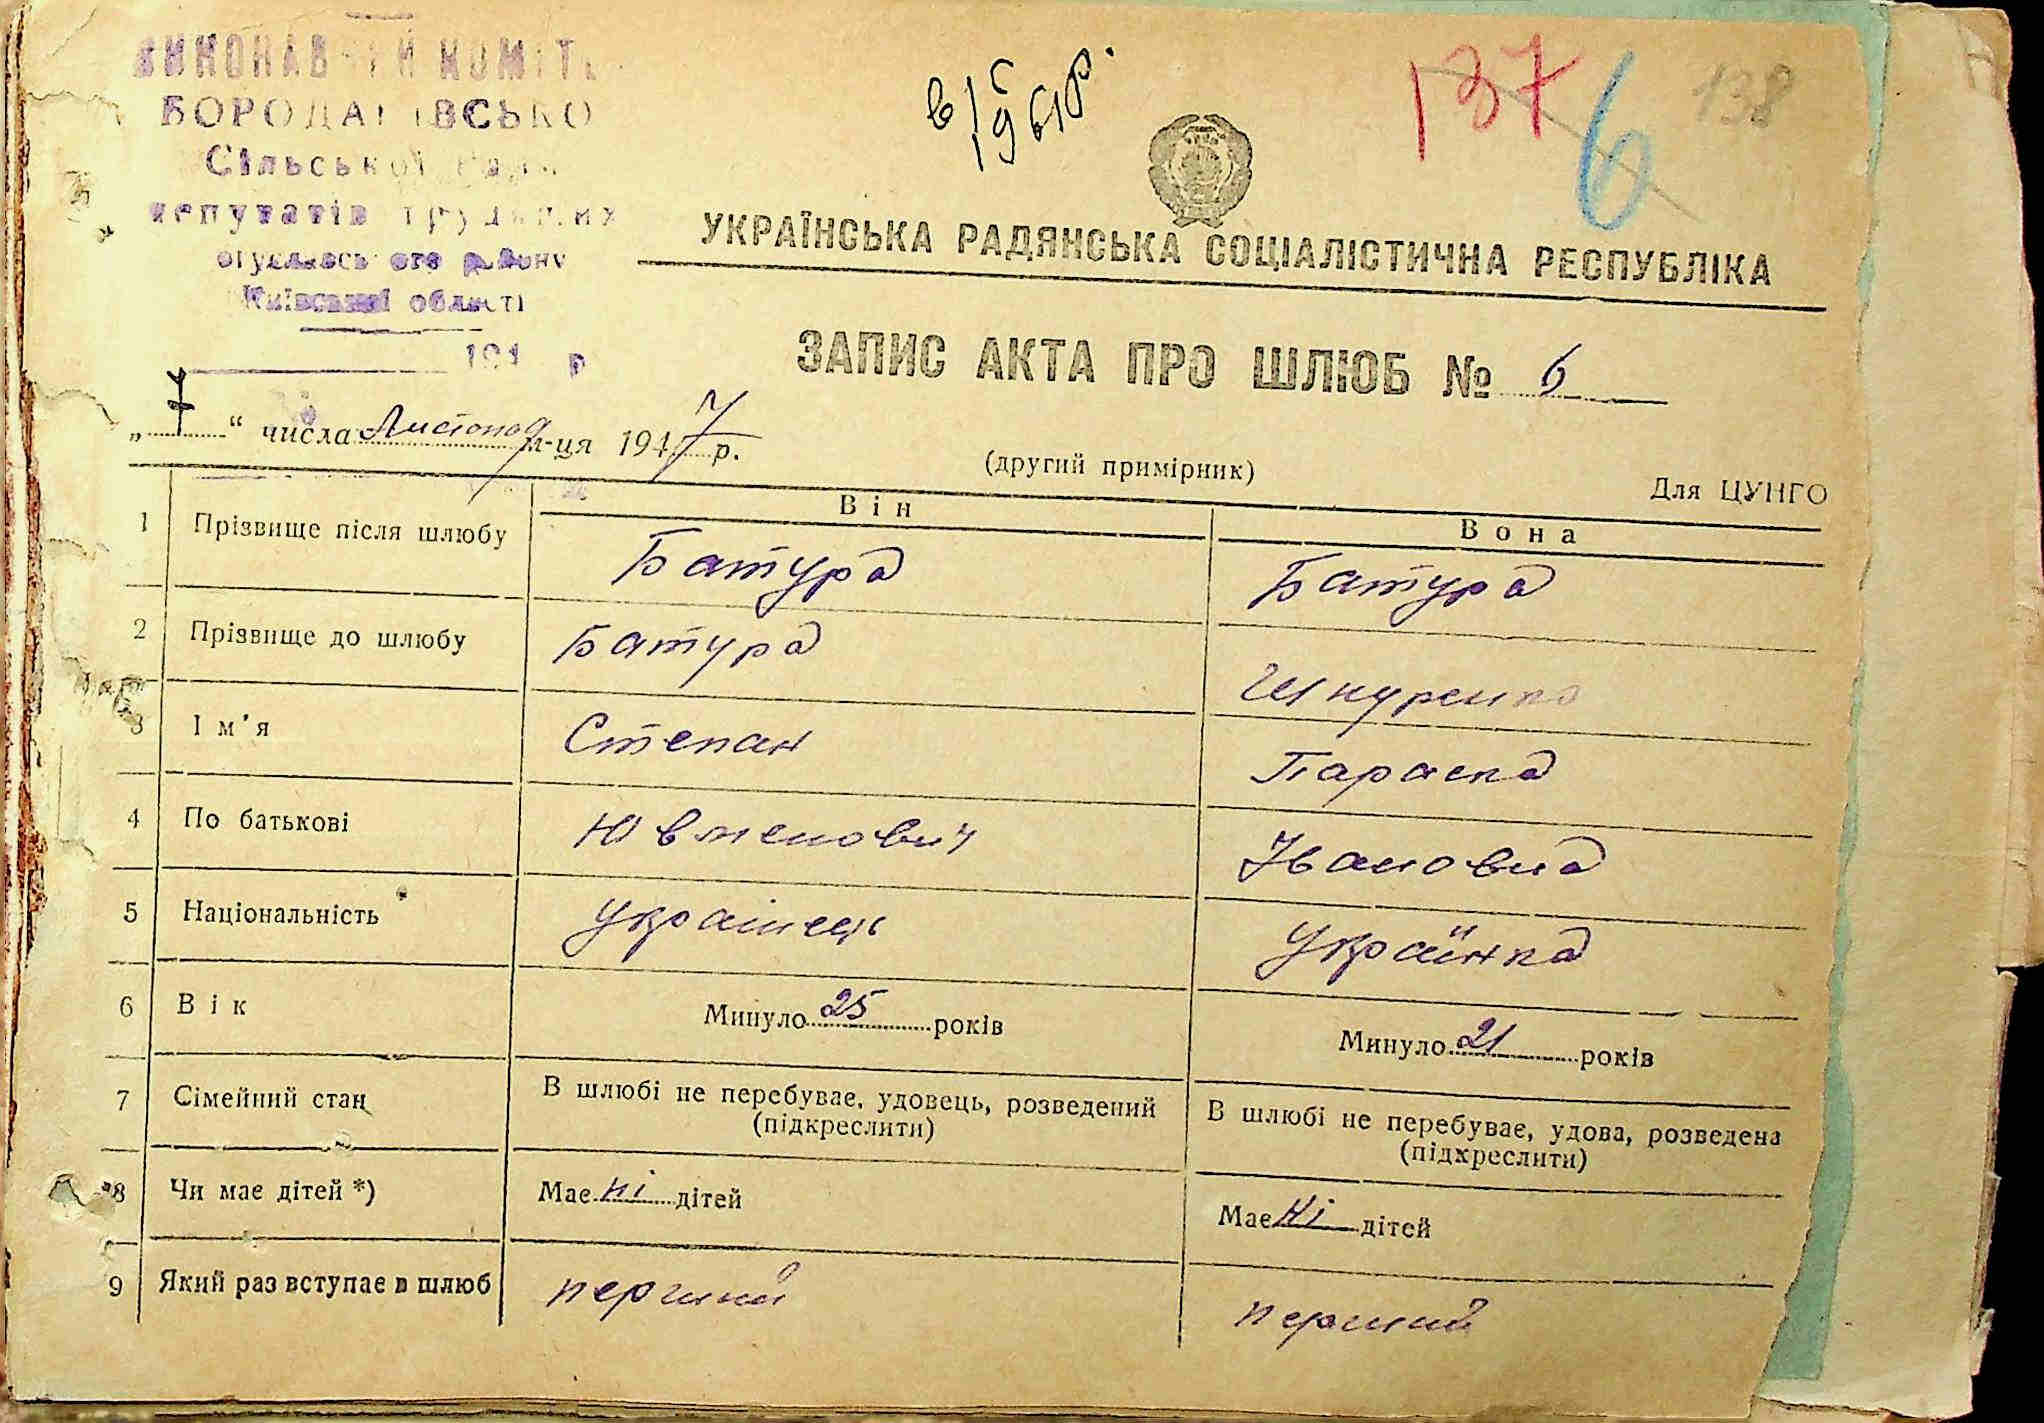 в 1961 р.
137 6 138
ВИКОНАВЧИЙ КОМІТ
БОРОДАНІВСЬКО
Сільської Ради
депутатів трудящих
Богуславського району
Київської області
194 р
УКРАЇНСЬКА РАДЯНСЬКА СОЦІАЛІСТИЧНА РЕСПУБЛІКА
ЗАПИС АКТА ПРО ШЛЮБ № 6
„ 7 “ числа Листопад м-ця 1947 р.
(другий примірник)
Для ЦУНГО
Він Вона
1 Прізвище після шлюбу Батура Батура
2 Прізвище до шлюбу Батура Шкуренко
3 Ім’я Степан Параска
4 По батькові Ювменович Івановна
5 Національність Українець Українка
6 Вік Минуло 25 років Минуло 21 років
7 Сімейний стан В шлюбі не перебуває, удовець, розведений (підкреслити) В шлюбі не перебуває, удова, розведена (підкреслити)
8 Чи має дітей *) Має ні дітей Має ні дітей
9 Який раз вступає в шлюб перший перший